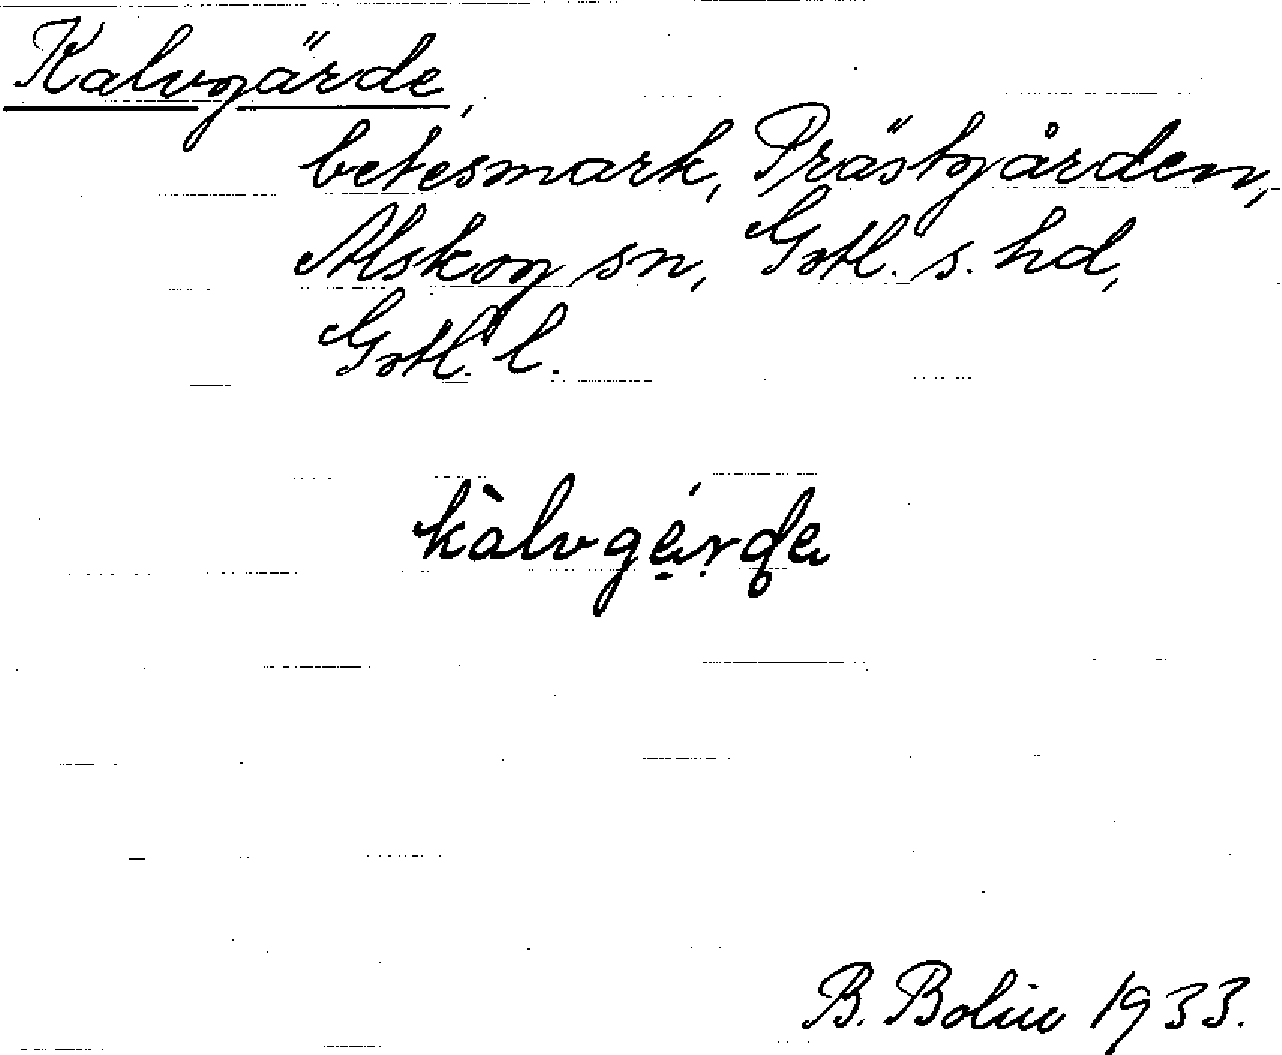 Kalvgärde,
betesmark, Prästgården,
Alskog sn, Gotl. s. hd,
Gotl. l.
kàlvgárde
B. Bolin 1933.